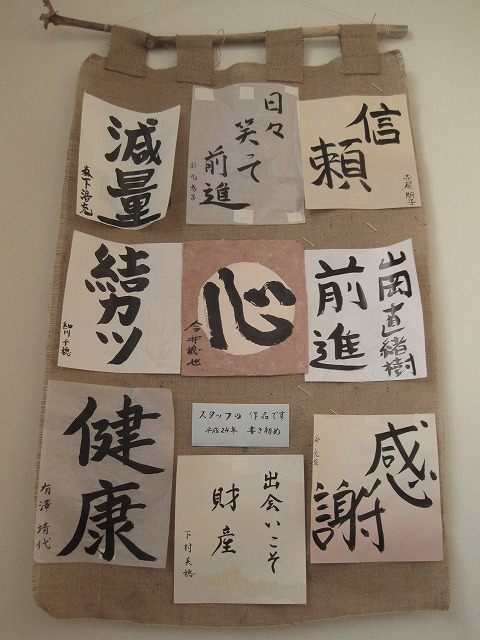 信頼
赤尾 朋子
日々
笑って
前進
減量
森下浩充
山岡直緒樹
前進
心
結カツ
細川 千穂
感謝
スタッフの 作品です
平成24年 書き初め
出会いこそ
財産
下村 美穂
健康
有澤 靖代